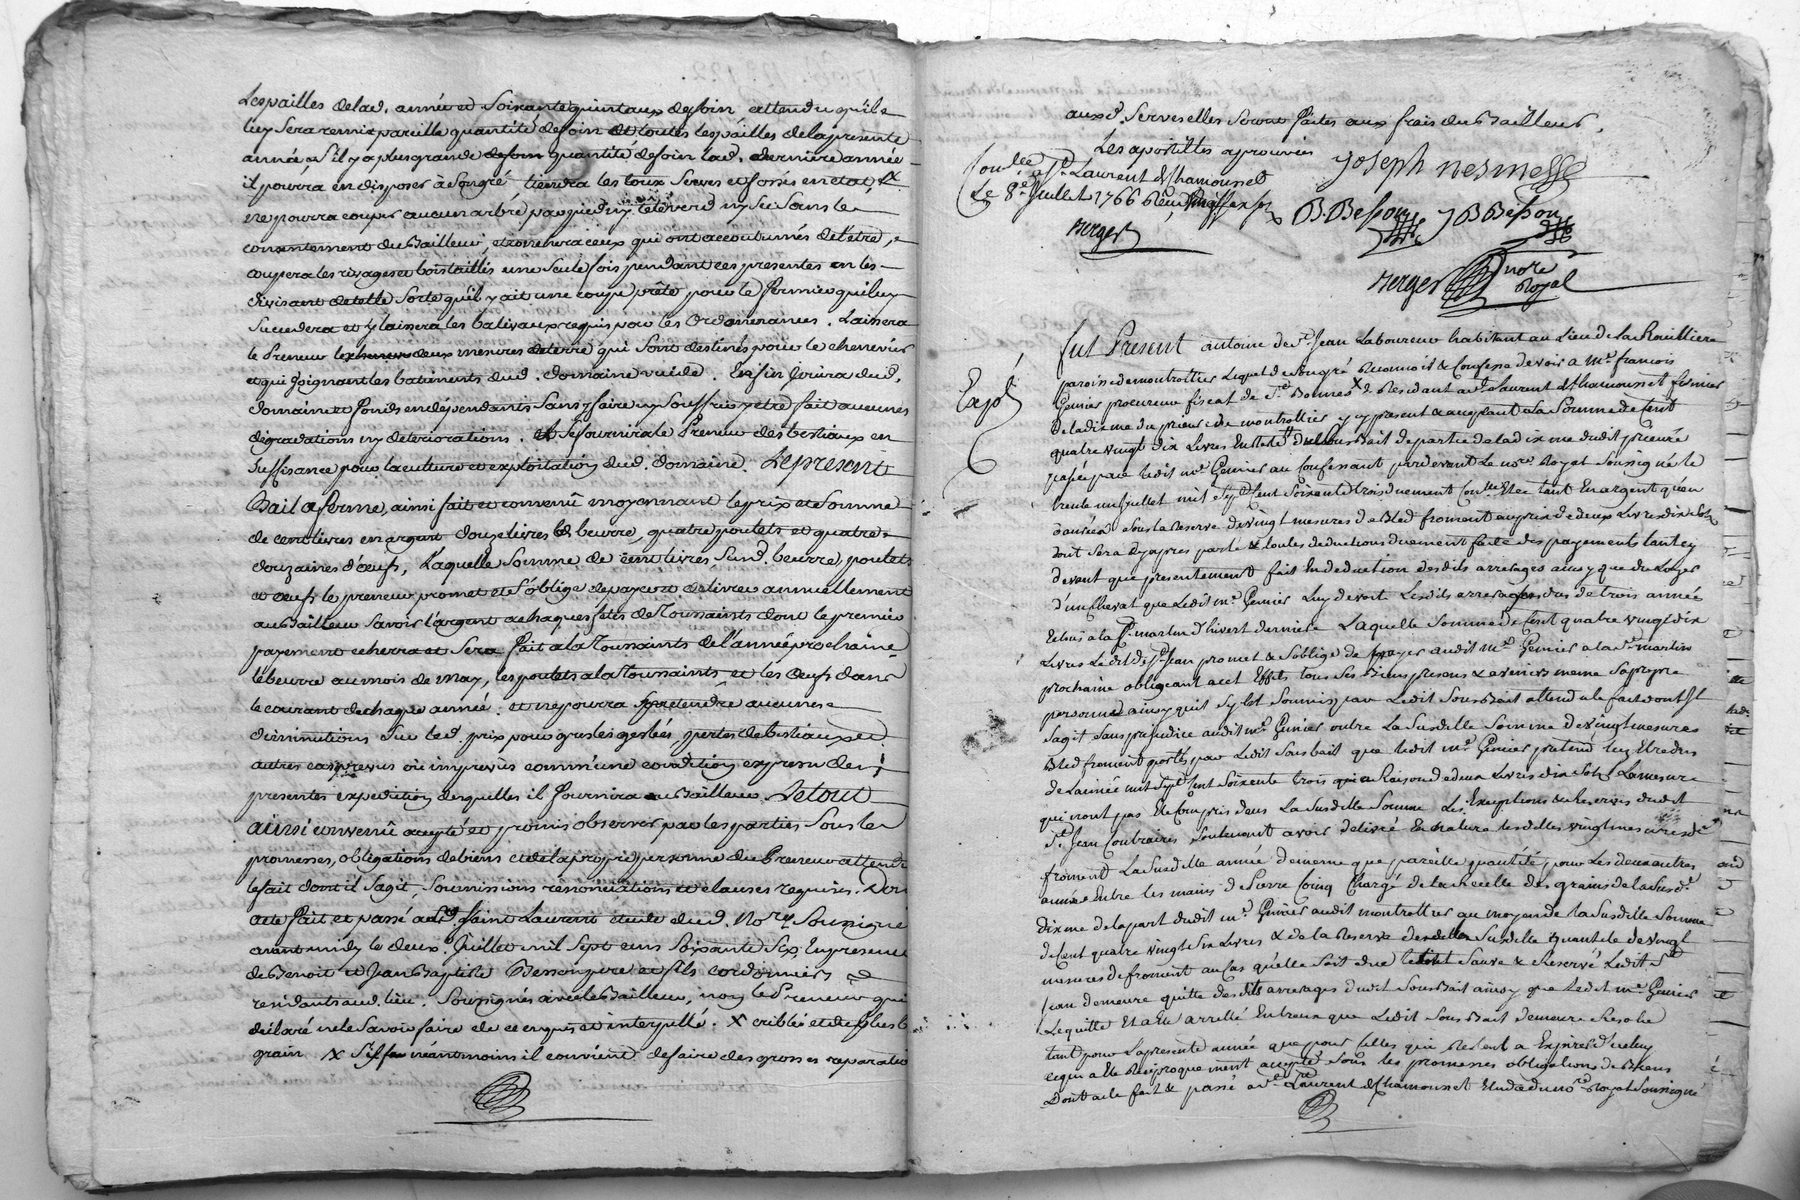 Les pailles de lad. année et Soixante quintaux de foin, attendu qu'il
luy Sera remis pareille quantité de foin et toutes les pailles de la presente
année et S'il y a plus grande quantité de foin lad. derniere année
il pourra en disposer à Son gré tiendra les Serves et fossés en etat
ne poura couper aucun arbre par pied ny tete verd ny Sec Sans le
consentement du Bailleur, et tronchera ceux qui ont accoutumés de l'etre,
coupera les rivages et bois taillis une Seule fois pendant ces presentes en les
divisant de telle Sorte qu'il y ait une coupe prête pour le Fermier qui luy
Succedera et y laissera les balivaux requis par les Ordonnances. Laissera
le Preneur deux mesures de terre qui Sont destinés pour le chenevier
et qui Joignant les batiments dud. domaine vuide. Enfin Jouira dud.
domaine et Fonds en dépendants Sans y faire ny Souffrir y etre fait aucunes
dégradations ny deteriorations. et Se fournira le Preneur des bestiaux en
Suffisance pour la culture et exploitation dud. domaine. Le present
Bail a ferme, ainsi fait et convenû moyennant le prix et Somme
de cent livres en argent douze livres de beurre, quatre poulets et quatre
douzaines d'œufs, Laquelle Somme de cent livres, Susd. beurre, poulets
et œufs le preneur promet et S'oblige de payer et delivrer annuellement
au Bailleur Savoir l'argent a chaques fetes de Toussaints dont le premier
payement echerra et Sera fait a la Toussaints de l'année prochaine
le beurre au mois de may, les poulets a la Toussaints et les œufs dans
le courant de chaque année. et ne pourra pretendre aucunes
diminutions du led. prix pour gresles gelées, pertes de bestiaux et
autres cas prevus ou imprevus comme une condition expresse des
presentes expedition desquelles il fournira au Bailleur. Le tout
ainsi convenû accepté et promis observer par les parties Sous les
promesses, obligations de biens et de la propre personne du Preneur attendu
le fait dont il S'agit, Soumissions renonciations et clauses requises. Dont
acte Fait et passé aud. Saint Laurent étude dud. Nore. Soussigné
avant midy le deux. Juillet mil Sept cens Soixante Six, En presence
de Benoit et Jean Baptiste Besson pere et fils cordonniers
residants aud. lieu. Soussignés avec le Bailleur, non le Preneur qui
declaré ne le Savoir faire de ce enquis et interpellé. X criblés et du plus b
grain X néantmoins il convient de faire des grosses reparatio
auxd. Servesselles Seront Faites aux frais du Bailleur.
Les apostilles aprouvées
Joseph Nesmesse
Conllé a St. Laurent de Chamousset
Le 8e. Juillet 1766
Berger
B. Besson J B Besson
Berger
nore
Royal
Expdé
Fut Present antoine de St. Jean Laboureur habitant au Lieu de La Rouilliere
paroisse de montrottier Lequel de Songré Reconnoit & Confesse devoir a Mr. francois
Genier procureur fiscal de Ste. Bonnes X & Residant a St. Laurent de Chamousset fermier
de la dixme du prieuré de montrottier y present & acceptant a la Somme de Cent
quatre vingt dix Livres En Reste du Sous Bail de partie de la dixme dudit prieuré
passé par ledit mr. Genier au Confessant pardevant Le nore. Royal Soussigné le
trente un Juillet mil Sept Cent Soixante trois duement Conllé. Et ce tant En argent qu'en
Sous la Reserve de vingt mesures de Bled froment au prix de deux Livres dix Sols
dont Sera Cy apres parlé & toutes deductions duement faite des payements tant cy
devant que presentement fait En deduction desdits arrerages ainsy que du Loyer
d'un Cheval que Ledit mr. Genier Luy devoit Lesdits arrerages dus de trois année
Echus a la St. martin d'hivert derniere Laquelle Somme de Cent quatre vingt dix
Livres Ledit de St. Jean promet & S'oblige de payer audit Mr. Genier a la St. martin
prochaine obligeant a cet Effet tous Ses Biens presens & avenirs meme Sa propre
personne ainsy quil Sy est Soumis par Ledit Sous Bail attendu le fait dont Il
Sagit Sans prejudice audit mr. Genier outre La Susdite Somme de vingt mesures
Bled froment portés par Ledit Sous bail que ledit mr. Genier pretend luy Etre dus
de Lannée mil Sept Cent Soixante trois a Raison de deux Livres dix Sols La mesure
qui n'ont pas Eté Compris dans La Susdite Somme Les Exceptions & Reserves dudit
St. Jean Contraires Soutenant avoir delivré En Nature lesdittes vingt mesures de
froment La Susditte année de meme que pareille quantité pour Les deux autres
année Entre les mains de Pierre Coing Chargé de la Recette des grains de la Susde.
dixme de la part dudit mr. Genier audit montrottier au moyen de la Susditte Somme
de Cent quatre vingt dix Livres & de la Reserve de Susditte quantité de vingt
mesures de froment au Cas qu'elle Soit due le tout Sauve & Reservé Ledit St.
Jean demeure quitte des dits arrerages dudit Sous Bail ainsy que Ledit mr. Genier
Le quitte Et a Eté arretté Entreux que Ledit Sous Bail demeure Resolu
tant pour La presente année que pour Celles qui Restent a Expirer d'iceluy
ce qui a Eté Reciproquement accepté Sous les promesses obligations de Biens
Dont acte fait & passé a St. Laurent de Chamousset Etude du nore. Royal Soussigné